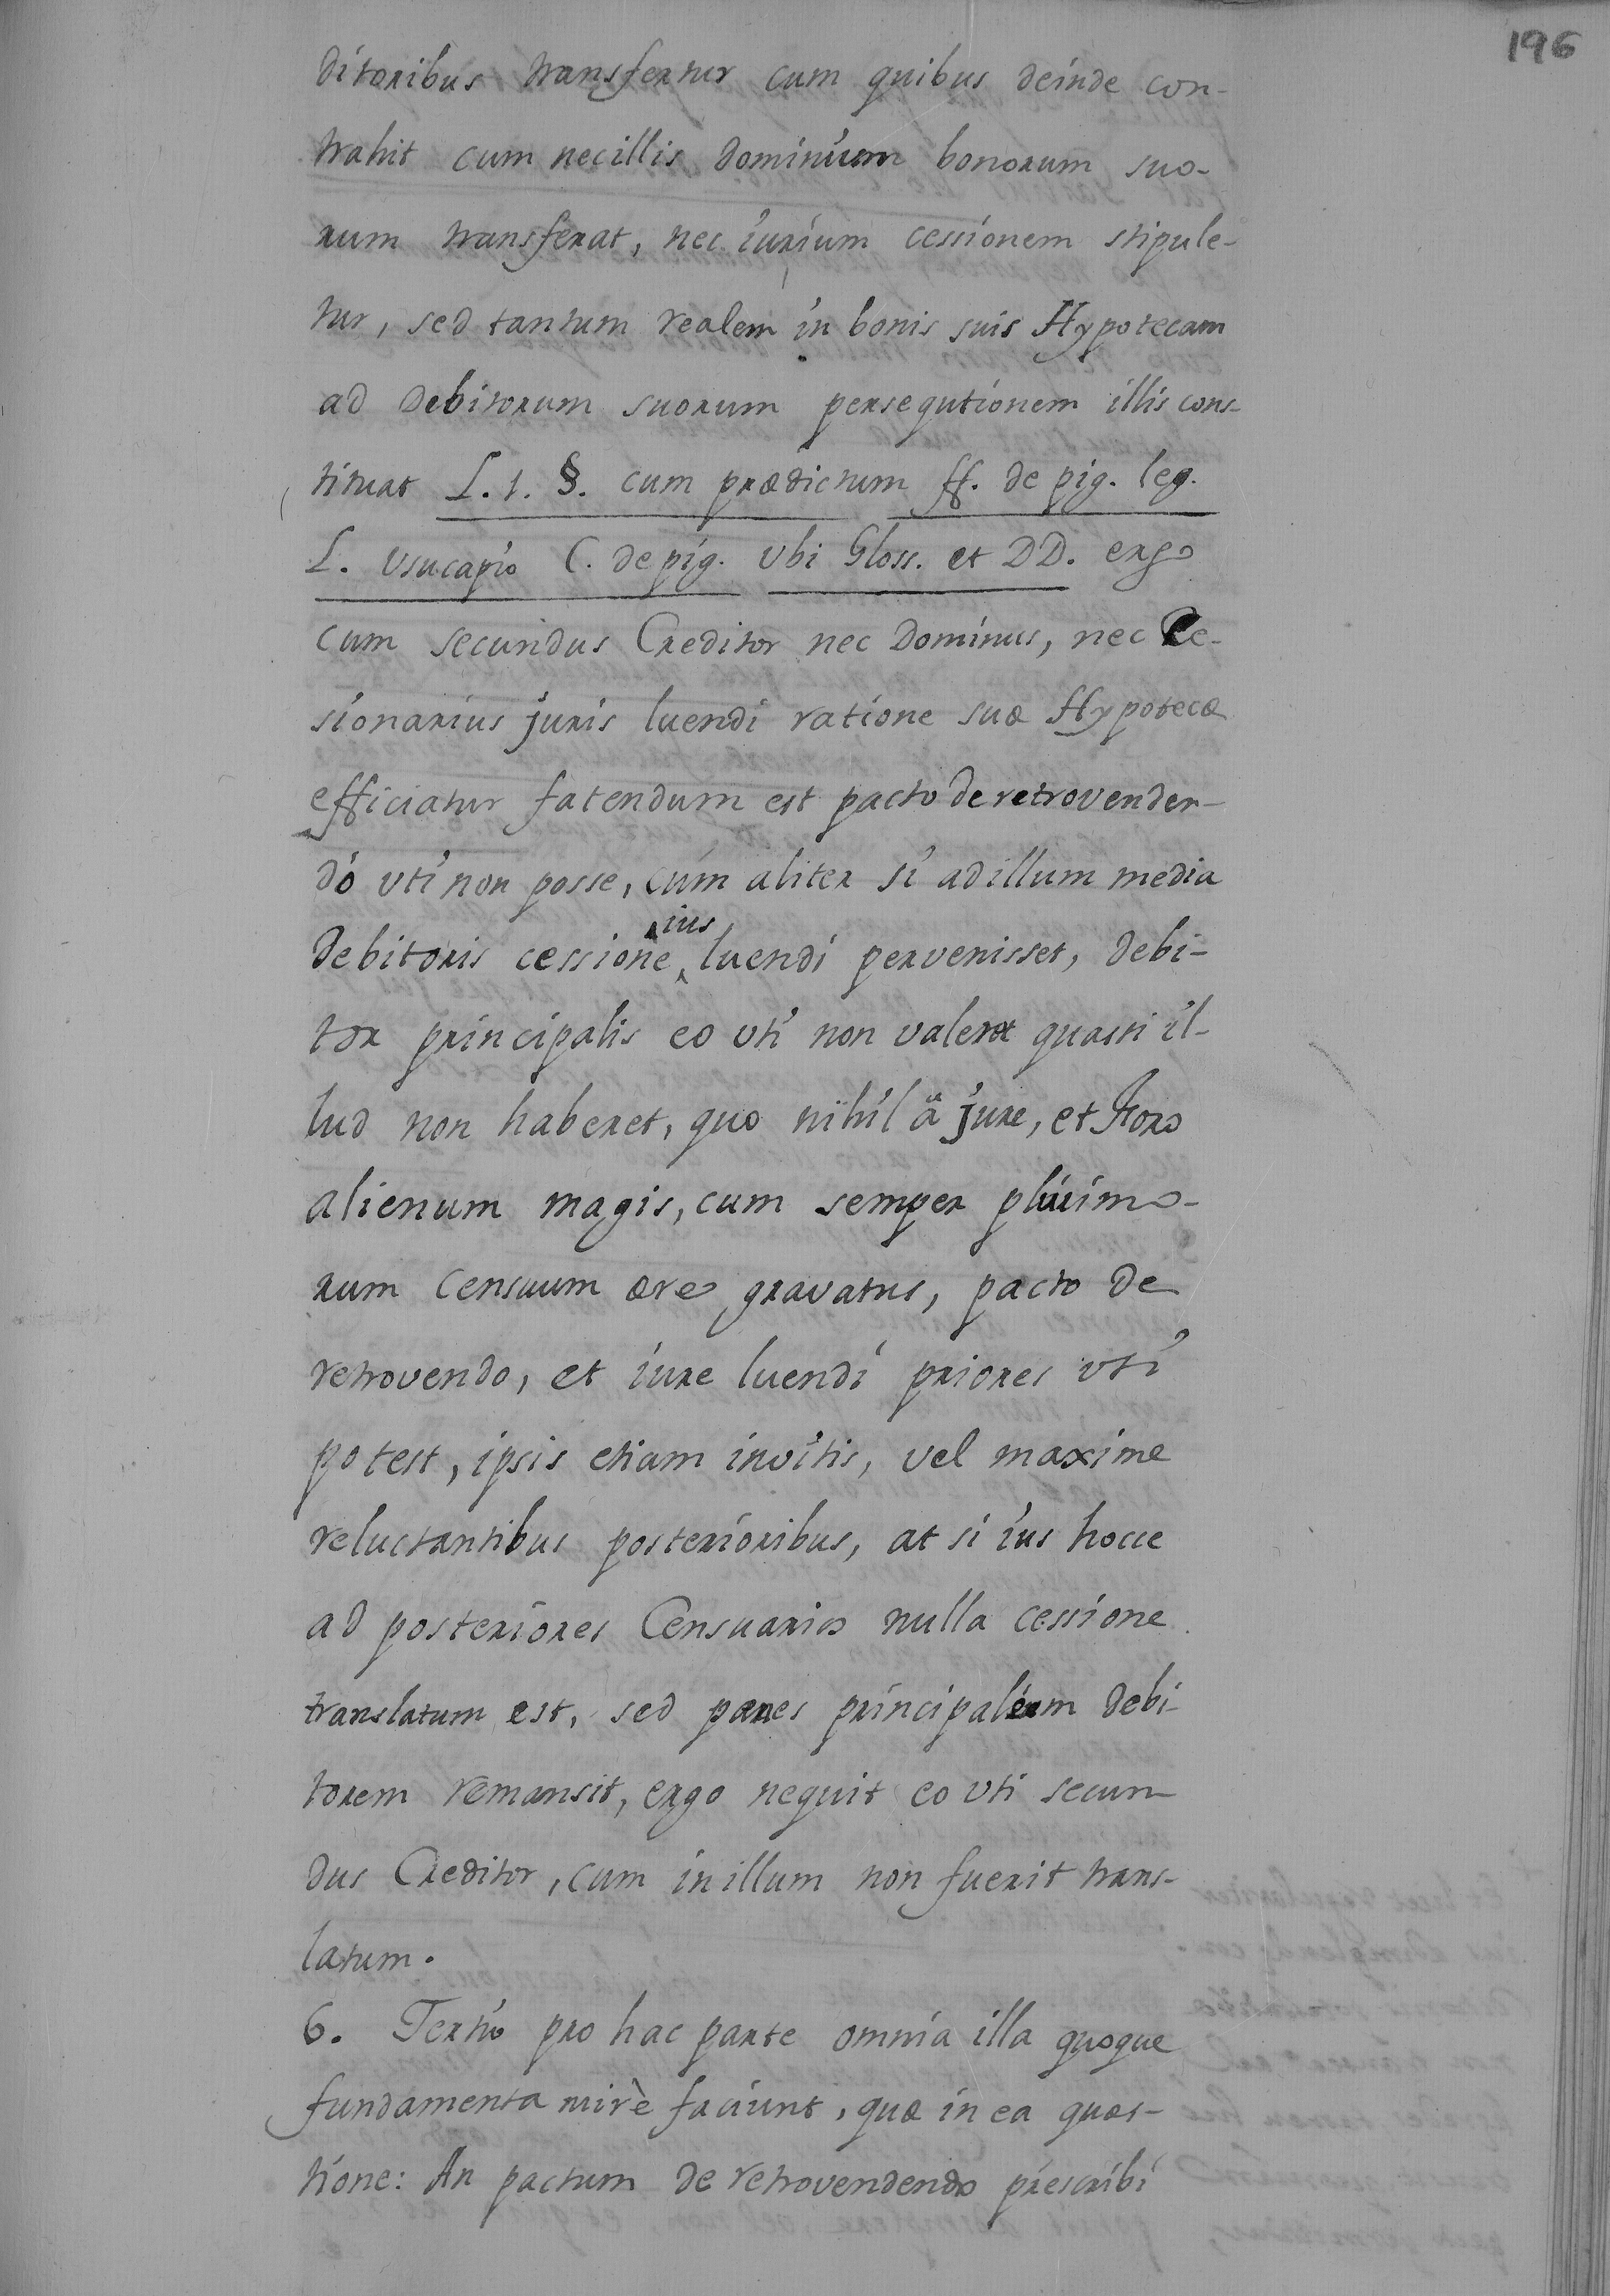 196
ditoribus transfertur cum quibus deinde con-
trahit cum nec illis dominium bonorum suo-
rum transferat, nec iurium cessionem stipule-
tur, sed tantum realem in bonis suis Hypotecam
ad debitorum suorum persequtionem illis cons-
tituat L. 1. §. cum prædictum ff. de pig. leg.
L. Usucapio C. de pig. Vbi Gloss. et DD. ergo
cum secundus Creditor nec Dominus, nec Ce-
sionarius juris luendi ratione suæ Hypotecæ
efficiatur fatendum est pacto de retrovenden-
dó vti non posse, cúm aliter si ad illum media
debitoris cessione ius luendi pervenisset, debi-
tor principalis eo vti non valeret quasi il-
lud non haberet, quo nihil â jure, et Foro
alienum magis, cum semper plurimo-
rum censuum ære gravatus, pacto de
retrovendo, et iure luendi priores vti
potest, ipsis etiam invitis, vel maxime
reluctantibus posterioribus, at si ius hocce
ad posteriores Censuarios nulla cessione
translatum est, sed penes principalem debi-
torem remansit, ergo nequit eo vti secun-
dus Creditor, cum in illum non fuerit trans-
latum.
6. Tertio pro hac parte omnia illa quoque
fundamenta mirè faciunt, quæ in ea quæs-
tione: An pactum de retrovendendo prescribi